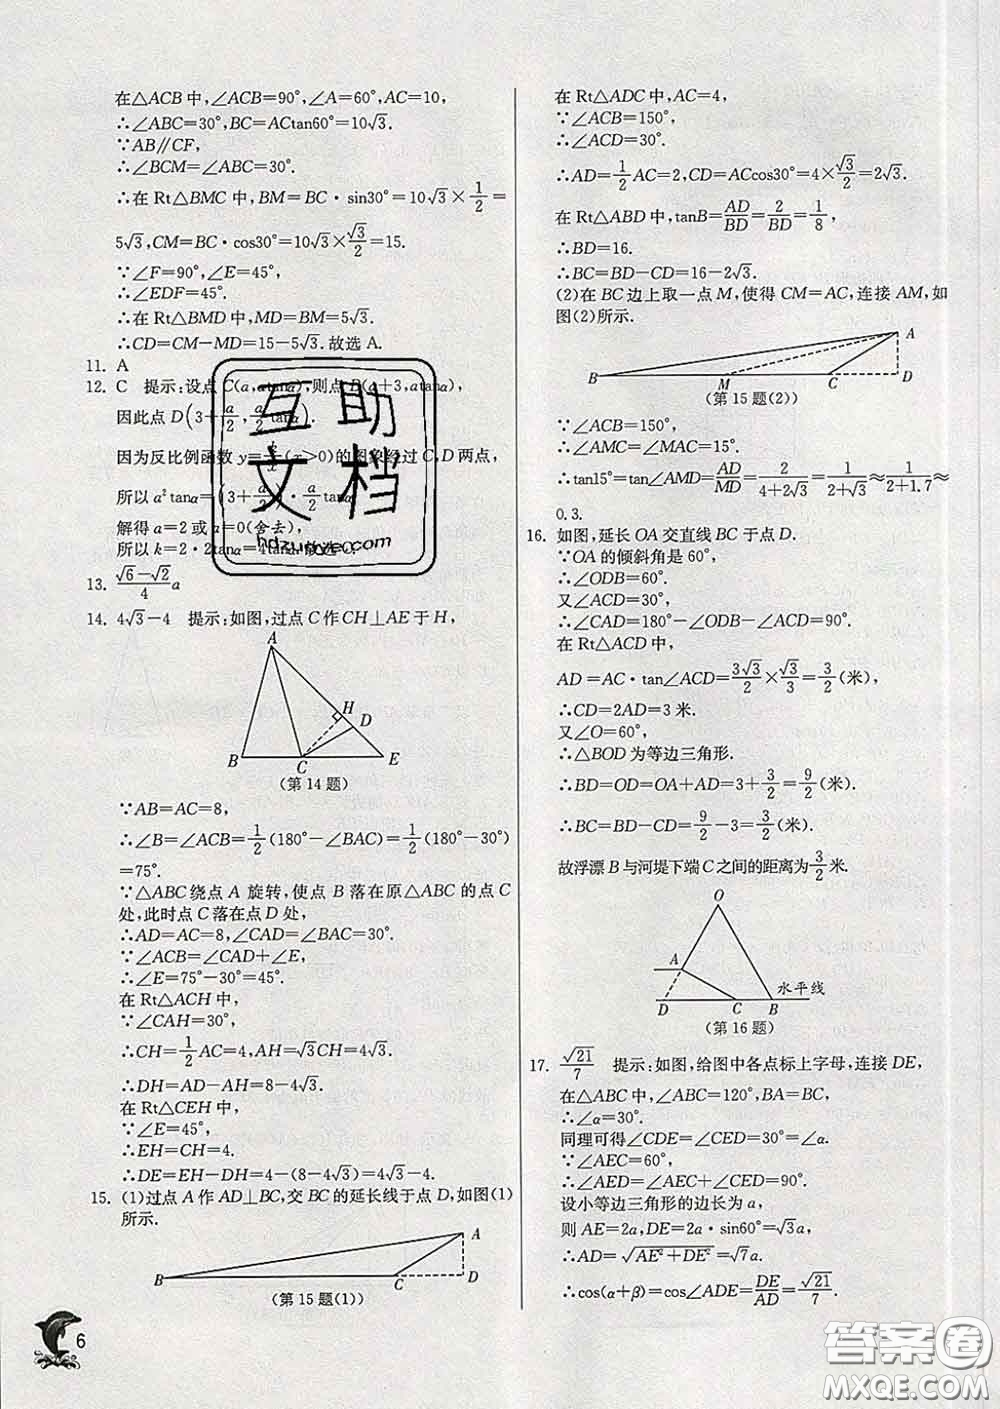 在△ACB中,∠ACB=90°,∠A=60°,AC=10,
∴∠ABC=30°,BC=ACtan60°=10√3.
∵AB∥CF,
∴∠BCM=∠ABC=30°.
∴在Rt△BMC中,BM=BC·sin30°=10√3×1/2=
5√3,CM=BC·cos30°=10√3×√3/2=15.
∵∠F=90°,∠E=45°,
∴∠EDF=45°.
∴在Rt△BMD中,MD=BM=5√3.
∴CD=CM-MD=15-5√3.故选A.
11. A
12. C 提示:设点C(a,atanα),则点B(a+3,atanα),
因此点D(3+a/2,a/2 tanα).
因为反比例函数y=k/x(x>0)的图象经过C,D两点,
所以a²tanα=(3+a/2)·a/2 tanα
解得a=2或a=0(舍去),
所以k=2·2tanα=4tanα.
13. (√6-√2)/4 a
14. 4√3-4 提示:如图,过点C作CH⊥AE于H,
A
H
D
B
C
E
(第14题)
∵AB=AC=8,
∴∠B=∠ACB=1/2(180°-∠BAC)=1/2(180°-30°)
=75°.
∵△ABC绕点A旋转,使点B落在原△ABC的点C
处,此时点C落在点D处,
∴AD=AC=8,∠CAD=∠BAC=30°.
∵∠ACB=∠CAD+∠E,
∴∠E=75°-30°=45°.
在Rt△ACH中,
∵∠CAH=30°,
∴CH=1/2AC=4,AH=√3CH=4√3.
∴DH=AD-AH=8-4√3.
在Rt△CEH中,
∵∠E=45°,
∴EH=CH=4.
∴DE=EH-DH=4-(8-4√3)=4√3-4.
15. (1)过点A作AD⊥BC,交BC的延长线于点D,如图(1)
所示.
A
B
C
D
(第15题(1))
6
在Rt△ADC中,AC=4,
∵∠ACB=150°,
∴∠ACD=30°.
∴AD=1/2AC=2,CD=ACcos30°=4×√3/2=2√3.
在Rt△ABD中,tanB=AD/BD=2/BD=1/8,
∴BD=16.
∴BC=BD-CD=16-2√3.
(2)在BC边上取一点M,使得CM=AC,连接AM,如
图(2)所示.
A
B
M
C
D
(第15题(2))
∵∠ACB=150°,
∴∠AMC=∠MAC=15°.
∴tan15°=tan∠AMD=AD/MD=2/(4+2√3)=1/(2+√3)≈1/(2+1.7)≈
0.3.
16. 如图,延长OA交直线BC于点D.
∵OA的倾斜角是60°,
∴∠ODB=60°.
又∠ACD=30°,
∴∠CAD=180°-∠ODB-∠ACD=90°.
在Rt△ACD中,
AD=AC·tan∠ACD=3√3/2×√3/3=3/2(米),
∴CD=2AD=3米.
又∠O=60°,
∴△BOD为等边三角形.
∴BD=OD=OA+AD=3+3/2=9/2(米).
∴BC=BD-CD=9/2-3=3/2(米).
故浮漂B与河堤下端C之间的距离为3/2米.
O
A
水平线
D
C
B
(第16题)
17. √21/7 提示:如图,给图中各点标上字母,连接DE,
在△ABC中,∠ABC=120°,BA=BC,
∴∠α=30°.
同理可得∠CDE=∠CED=30°=∠α.
∵∠AEC=60°,
∴∠AED=∠AEC+∠CED=90°.
设小等边三角形的边长为a,
则AE=2a,DE=2a×sin60°=√3a.
∴AD=√(AE²+DE²)=√7a.
∴cos(α+β)=cos∠ADE=DE/AD=√21/7.
互助
文档
答案圈
MXQE.COM